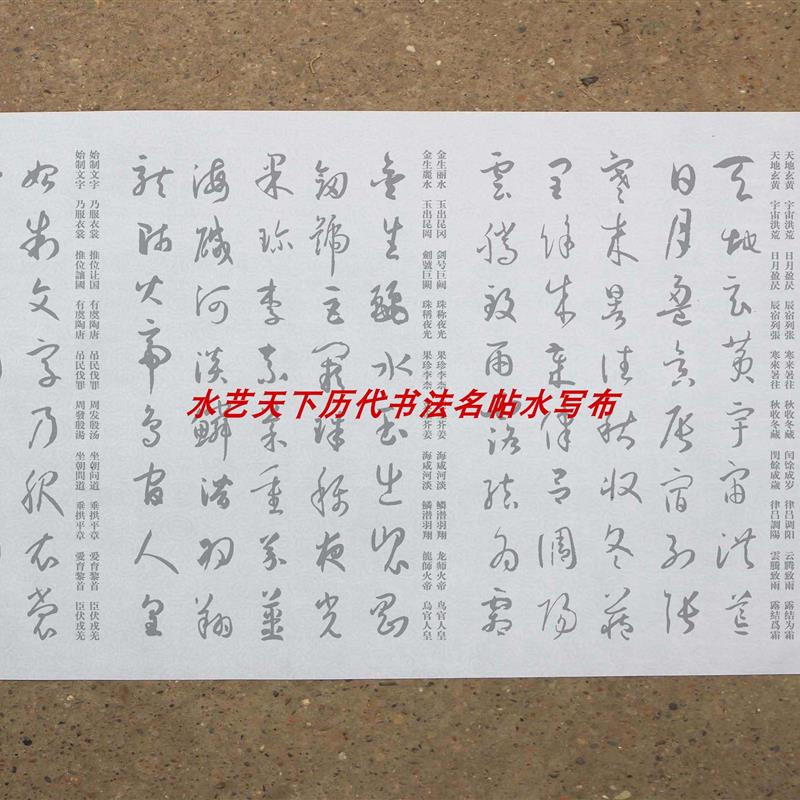 天地玄黄 宇宙洪荒 日月盈昃 辰宿列张 寒来暑往 秋收冬藏 闰馀成岁 律吕调阳 云腾致雨 露结为霜
天地玄黄 宇宙洪荒 日月盈昃 辰宿列張 寒來暑往 秋收冬藏 閏餘成歲 律呂調陽 雲騰致雨 露結爲霜
天地玄黄宇宙洪荒
日月盈昃辰宿列張
寒来暑往秋收冬藏
閏餘成歲律呂調陽
雲騰致雨露結為霜
金生丽水 玉出昆冈 剑号巨阙 珠称夜光 果珍李柰 芥姜 海咸河淡 鳞潜羽翔 龙师火帝 鸟官人皇
金生麗水 玉出昆岡 劍號巨闕 珠稱夜光 果珍李柰 芥薑 海咸河淡 鱗潛羽翔 龍師火帝 鳥官人皇
金生麗水玉出崑岡
劍號巨闕珠稱夜光
果珍李柰菜重芥薑
海鹹河淡鱗潛羽翔
龍師火帝鳥官人皇
始制文字 乃服衣裳 推位让国 有虞陶唐 吊民伐罪 周发殷汤 坐朝问道 垂拱平章 爱育黎首 臣伏戎羌
始制文字 乃服衣裳 推位讓國 有虞陶唐 吊民伐罪 周發殷湯 坐朝問道 垂拱平章 愛育黎首 臣伏戎羌
始制文字乃服衣裳
水艺天下历代书法名帖水写布